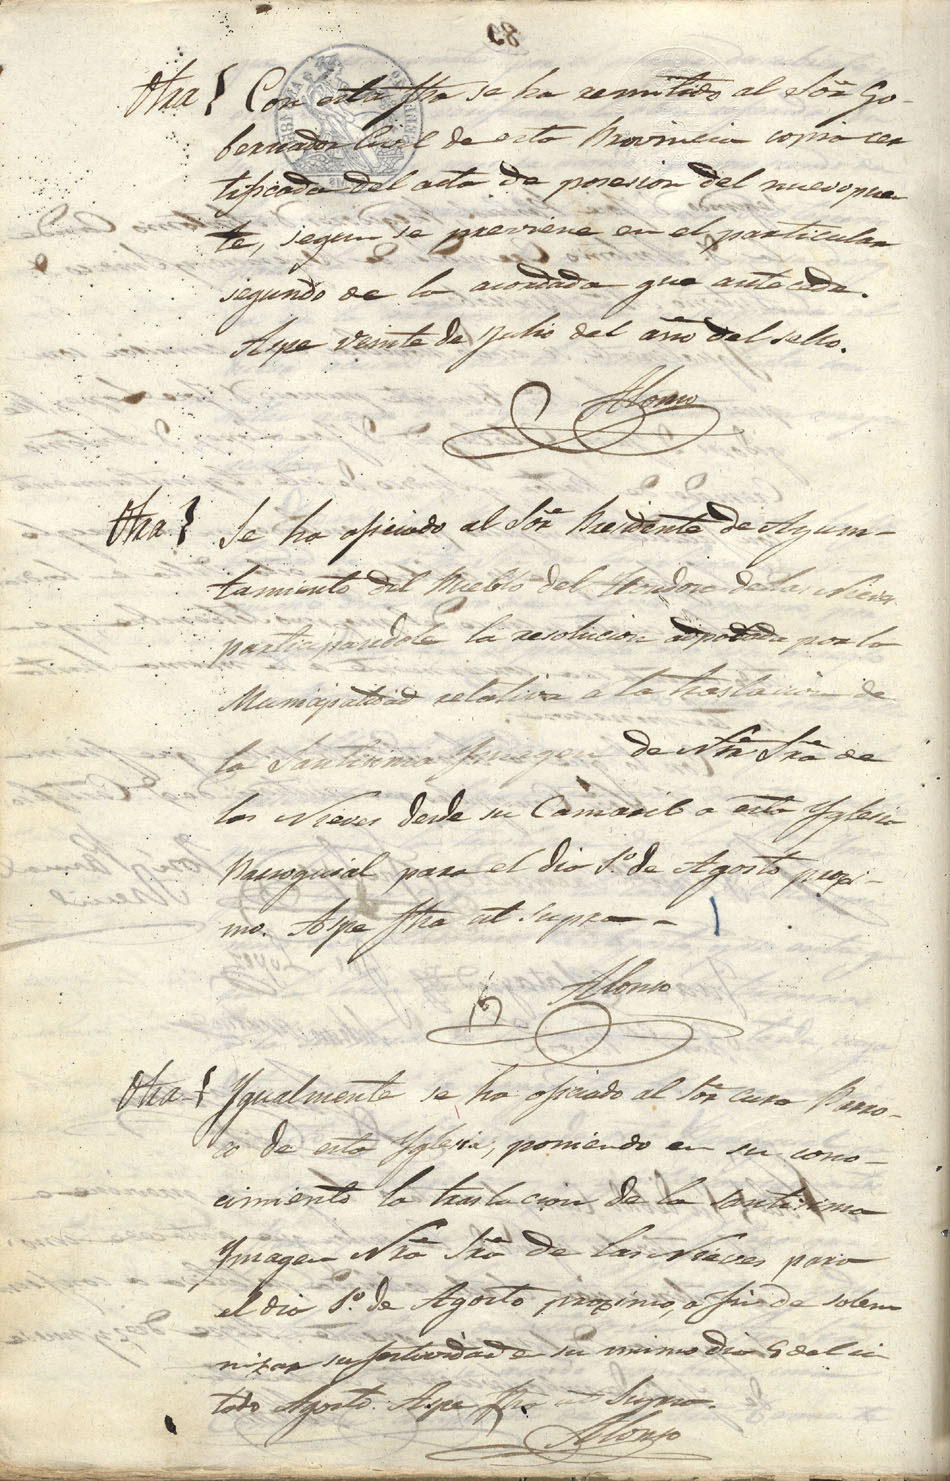 Otra { Con esta fha se ha remitido al Sõr Go-
bernador Civil de esta Provincia copia cer
tificada del acta de posesion del nuevo puen
te, segun se previene en el particular
segundo de la acordada que antecede.
Aspe veinte de Julio del año del sello.
Alonso
Otra } Se ha oficiado al Sõr Presidente de Ayun-
tamiento del Pueblo del Hondon de las Nieves
participandole la resolucion adoptada por la
Municipalidad relativa a la traslacion de
la Santisima Ymagen de Ntrã Srã de
las Nieves desde su Camaril a esta Yglesia
Parroquial para el dia 1.º de Agosto proxi-
mo. Aspe fha ut supra -
Alonso
Otra { Ygualmente se ha oficiado al Sõr Cura Parro-
co de esta Yglesia, poniendo en su cono-
cimiento la traslacion de la Santisima
Ymagen Ntrã Srã de las Nieves para
el dia 1.º de Agosto proximo, a fin de solem
nizar su festividad en su mismo dia 5 del ci
tado Agosto. Aspe fha ut Supra.
Alonso